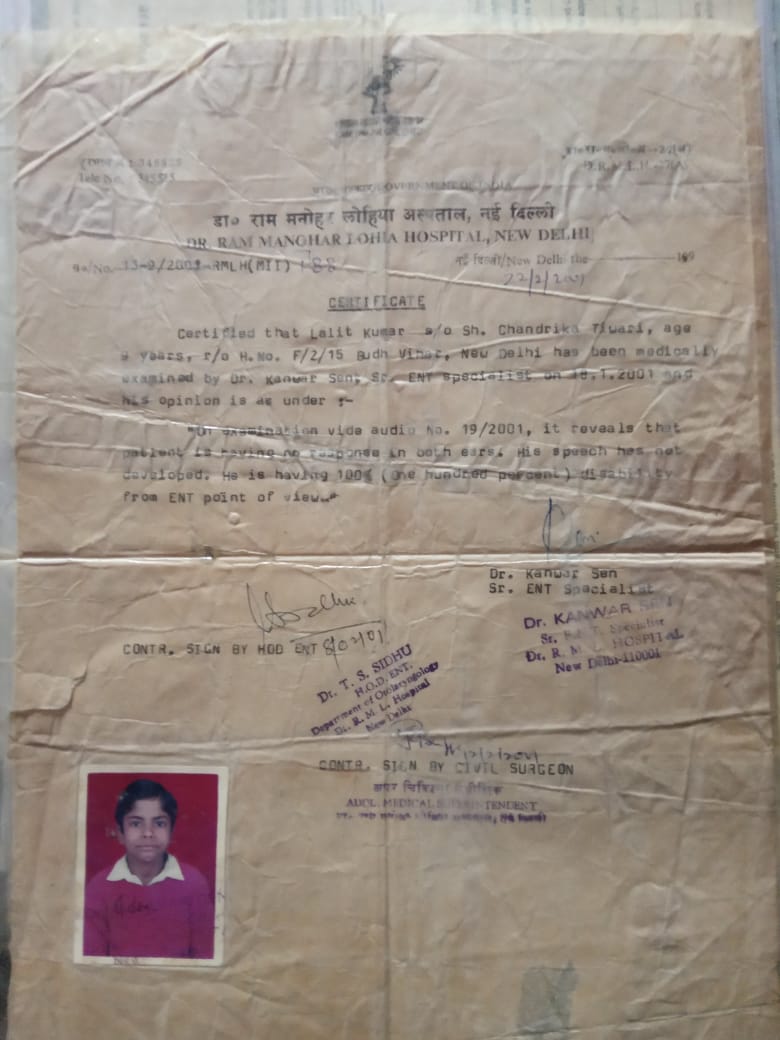 Tele No.
D.R.M.L.H.-27(A)
GOVERNMENT OF INDIA
डा० राम मनोहर लोहिया अस्पताल, नई दिल्ली
DR. RAM MANOHAR LOHIA HOSPITAL, NEW DELHI
सं०/No. 13-9/2001-RMLH(MIT) 188
नई दिल्ली/New Delhi the 199
22/2/2001
CERTIFICATE
Certified that Lalit Kumar s/o Sh. Chandrika Tiwari, age
9 years, r/o H.No. F/2/15 Budh Vihar, New Delhi has been medically
examined by Dr. Kanwar Sen, Sr. ENT Specialist on 18.1.2001 and
his opinion is as under :-
"On examination vide audio No. 19/2001, it reveals that
patient is having no response in both ears. His speech has not
developed. He is having 100% (One hundred percent) disability
from ENT point of view."
Dr. Kanwar Sen
Sr. ENT Specialist
Dr. KANWAR SEN
Sr. E.N.T. Specialist
Dr. R. M. L. HOSPITAL
New Delhi-110001
CONTR. SIGN BY HOD ENT 8/02/01
Dr. T. S. SIDHU
H.O.D. ENT.
Department of Otolaryngology
Dr. R. M. L. Hospital
New Delhi
12/2/2001
CONTR. SIGN BY CIVIL SURGEON
अपर चिकित्सा अधीक्षक
ADDL. MEDICAL SUPERINTENDENT